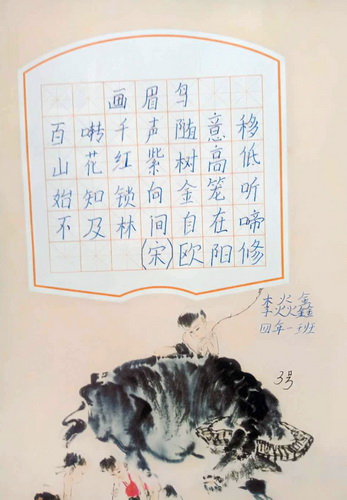 画眉鸟
百啭千声随意移
山花红紫树高低
始知锁向金笼听
不及林间自在啼
(宋)欧阳修
李焱鑫
四年一班
3号